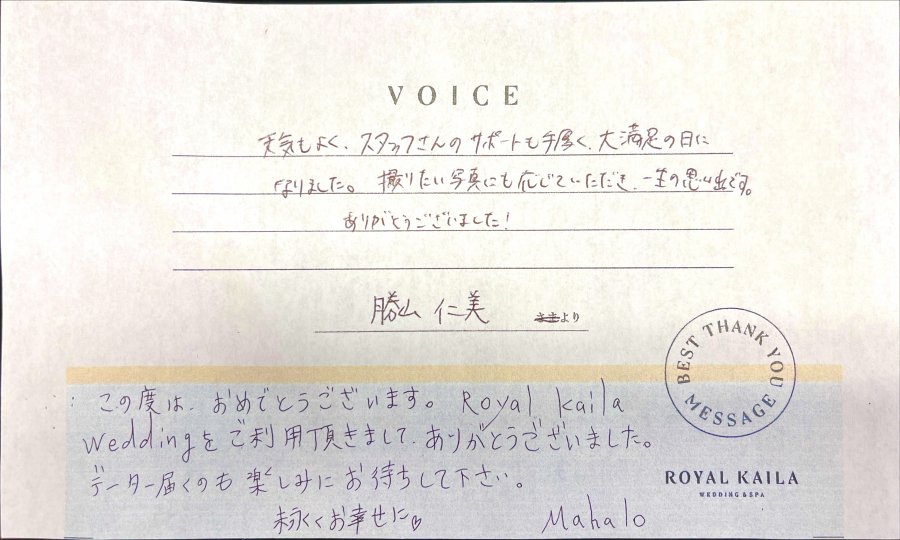 VOICE
天気もよく、スタッフさんのサポートも手厚く、大満足の日に
なりました。撮りたい写真にも応じていただき、一生の思い出です。
ありがとうございました!
勝山 仁美 さまより
BEST THANK YOU
MESSAGE
この度は、おめでとうございます。Royal kaila
weddingをご利用頂きまして、ありがとうございました。
データー届くのも楽しみにお待ちして下さい。
末永くお幸せに♡ Mahalo
ROYAL KAILA
WEDDING & SPA